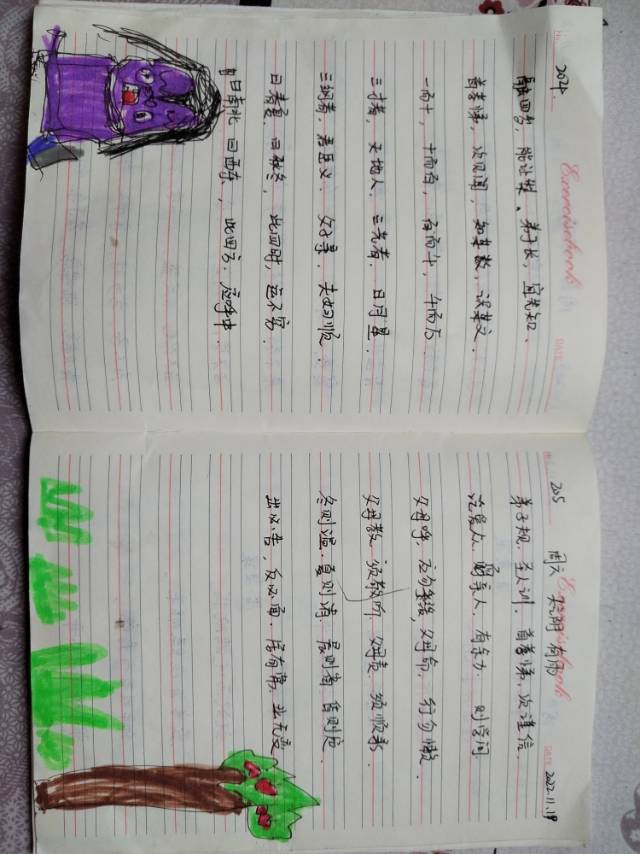 Exercisebook
DATE
融四岁，能让梨、弟于长，宜先知、
首孝悌，次见闻，知某数，识某文.
一而十，十而百，百而千，千而万
三才者，天地人，三光者，日月星.
三纲者，君臣义，父子亲，夫妇顺.
曰春夏，曰秋冬，此四时，运不穷.
曰南北，曰西东，此四方，应乎中
Exercisebook
DATE
205 周六 天阴 有雨 2022.11.19
弟子规，圣人训，首孝悌，次谨信
泛爱众，亲人，有余力，则学问
父母呼，应勿缓，父母命，行勿懒.
父母教，须敬听，父母责，须顺承
冬则温，夏则清，晨则省，昏则定
出必告，反必面，居有常，业无变